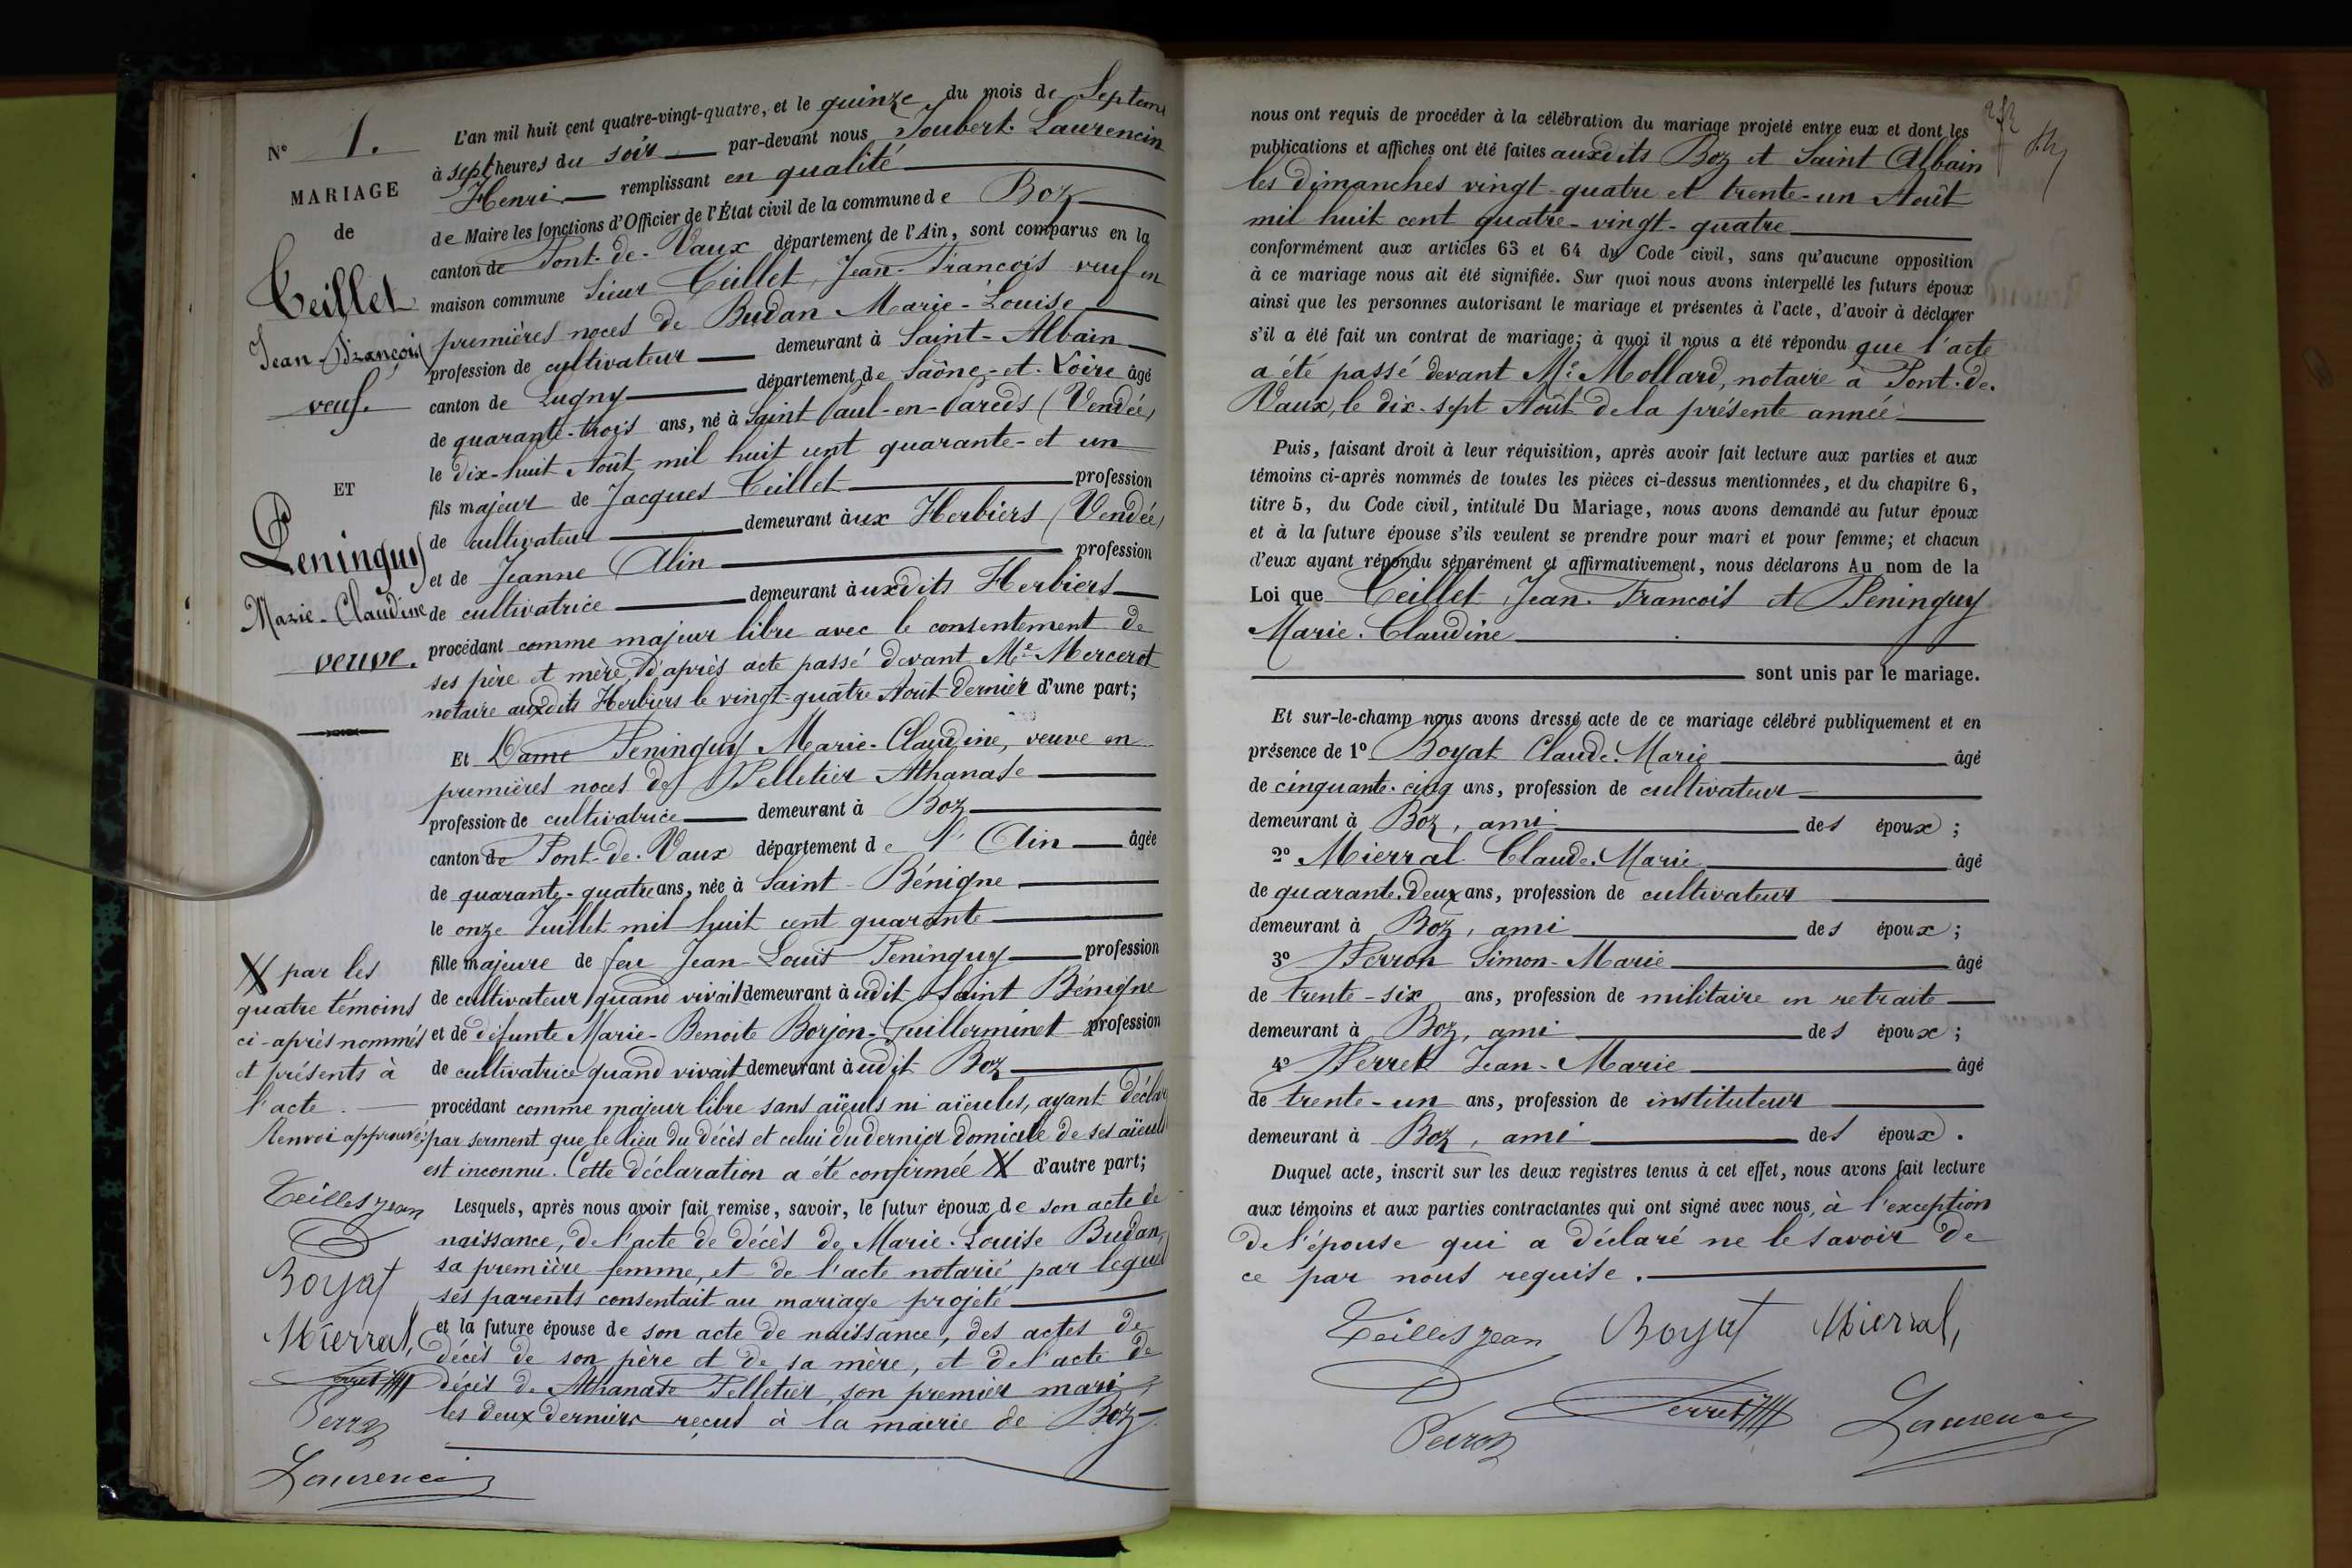 N° 1.
MARIAGE
de
Teillet
Jean-François
veuf.
ET
Peninguy
Marie-Claudine
veuve.
X par les
quatre témoins
ci-après nommés
et présents à
l'acte.
Renvoi approuvé:
Teillet Jean
Boyat
Mierral,
Perret
Perron
Laurencin
L'an mil huit cent quatre-vingt-quatre, et le quinze du mois de Septem
à sept heures du soir par-devant nous Joubert Laurencin
Henri remplissant en qualité
de Maire les fonctions d'Officier de l'État civil de la commune de Boz
canton de Pont-de-Vaux département de l'Ain, sont comparus en la
maison commune Sieur Teillet, Jean-François veuf en
premières noces de Budan Marie-Louise
profession de cultivateur demeurant à Saint-Albain
canton de Lugny département de Saône-et-Loire âgé
de quarante-trois ans, né à Saint Paul-en-Pareds (Vendée)
le dix-huit Août mil huit cent quarante-et un
fils majeur de Jacques Teillet profession
de cultivateur demeurant aux Herbiers (Vendée)
et de Jeanne Alin profession
de cultivatrice demeurant auxdits Herbiers
procédant comme majeur libre avec le consentement de
ses père et mère, d'après acte passé devant Me Merceret
notaire auxdits Herbiers le vingt-quatre Août dernier d'une part;
Et Dame Peninguy Marie-Claudine, veuve en
premières noces de Pelletier Athanase
profession de cultivatrice demeurant à Boz
canton de Pont-de-Vaux département de l'Ain âgée
de quarante-quatre ans, née à Saint-Bénigne
le onze Juillet mil huit cent quarante
fille majeure de feu Jean-Louis Peninguy profession
de cultivateur quand vivait demeurant audit Saint Bénigne
et de défunte Marie-Benoite Borjon-Guillerminet profession
de cultivatrice quand vivait demeurant audit Boz
procédant comme majeur libre sans aïeuls ni aïeules, ayant déclar
par serment que le lieu du décès et celui du dernier domicile de ses aïeuls
est inconnu. Cette déclaration a été confirmée X d'autre part;
Lesquels, après nous avoir fait remise, savoir, le futur époux de son acte de
naissance, de l'acte de décès de Marie-Louise Budan,
sa première femme, et de l'acte notarié par lequel
ses parents consentait au mariage projeté
et la future épouse de son acte de naissance, des actes de
décès de son père et de sa mère, et de l'acte de
décès de Athanase Pelletier, son premier mari,
les deux derniers reçus à la mairie de Boz.
nous ont requis de procéder à la célébration du mariage projeté entre eux et dont les
publications et affiches ont été faites auxdits Boz et Saint Albain
les dimanches vingt-quatre et trente-un Août
mil huit cent quatre-vingt-quatre
conformément aux articles 63 et 64 du Code civil, sans qu'aucune opposition
à ce mariage nous ait été signifiée. Sur quoi nous avons interpellé les futurs époux
ainsi que les personnes autorisant le mariage et présentes à l'acte, d'avoir à déclarer
s'il a été fait un contrat de mariage; à quoi il nous a été répondu que l'acte
a été passé devant Me Mollard, notaire à Pont-de-
Vaux, le dix-sept Août de la présente année
Puis, faisant droit à leur réquisition, après avoir fait lecture aux parties et aux
témoins ci-après nommés de toutes les pièces ci-dessus mentionnées, et du chapitre 6,
titre 5, du Code civil, intitulé Du Mariage, nous avons demandé au futur époux
et à la future épouse s'ils veulent se prendre pour mari et pour femme; et chacun
d'eux ayant répondu séparément et affirmativement, nous déclarons Au nom de la
Loi que Teillet Jean-François et Peninguy
Marie-Claudine
sont unis par le mariage.
Et sur-le-champ nous avons dressé acte de ce mariage célébré publiquement et en
présence de 1° Boyat Claude-Marie âgé
de cinquante-cinq ans, profession de cultivateur
demeurant à Boz, ami des époux;
2° Mierral Claude-Marie âgé
de quarante-deux ans, profession de cultivateur
demeurant à Boz, ami des époux;
3° Perron Simon-Marie âgé
de trente-six ans, profession de militaire en retraite
demeurant à Boz, ami des époux;
4° Perret Jean-Marie âgé
de trente-un ans, profession de instituteur
demeurant à Boz, ami des époux.
Duquel acte, inscrit sur les deux registres tenus à cet effet, nous avons fait lecture
aux témoins et aux parties contractantes qui ont signé avec nous, à l'exception
de l'épouse qui a déclaré ne le savoir de
ce par nous requise.
Teillet Jean Boyat Mierral,
Perron Perret Laurencin